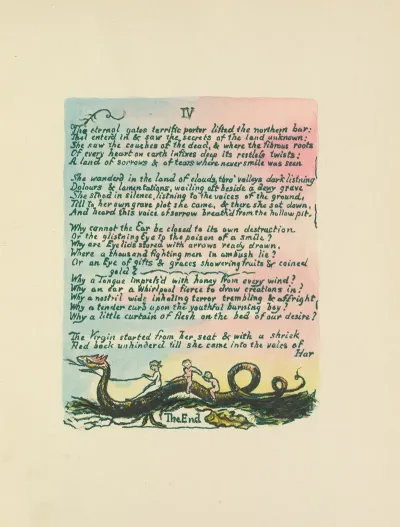 IV
The eternal gates terrific porter lifted the northern bar:
Thel enter'd in & saw the secrets of the land unknown;
She saw the couches of the dead, & where the fibrous roots
Of every heart on earth infixes deep its restless twists:
A land of sorrows & of tears where never smile was seen
She wanderd in the land of clouds, thro' valleys dark listning
Dolours & lamentations, waiting oft beside a dewy grave
She stood in silence, listning to the voices of the ground,
Till to her own grave plot she came, & there she sat down,
And heard this voice of sorrow breath'd from the hollow pit.
Why cannot the Ear be closed to its own destruction
Or the glistning Eye to the poison of a smile?
Why are Eyelids stored with arrows ready drawn,
Where a thousand fighting men in ambush lie?
Or an Eye of gifts & graces showering fruits & coined
gold?
Why a Tongue impress'd with honey from every wind?
Why an Ear a whirlpool fierce to draw creations in?
Why a nostril wide inhaling terror trembling & affright,
Why a tender curb upon the youthful burning boy?
Why a little curtain of flesh on the bed of our desire?
The Virgin started from her seat & with a shriek
Fled back unhinderd till she came into the vales of
Har
The End